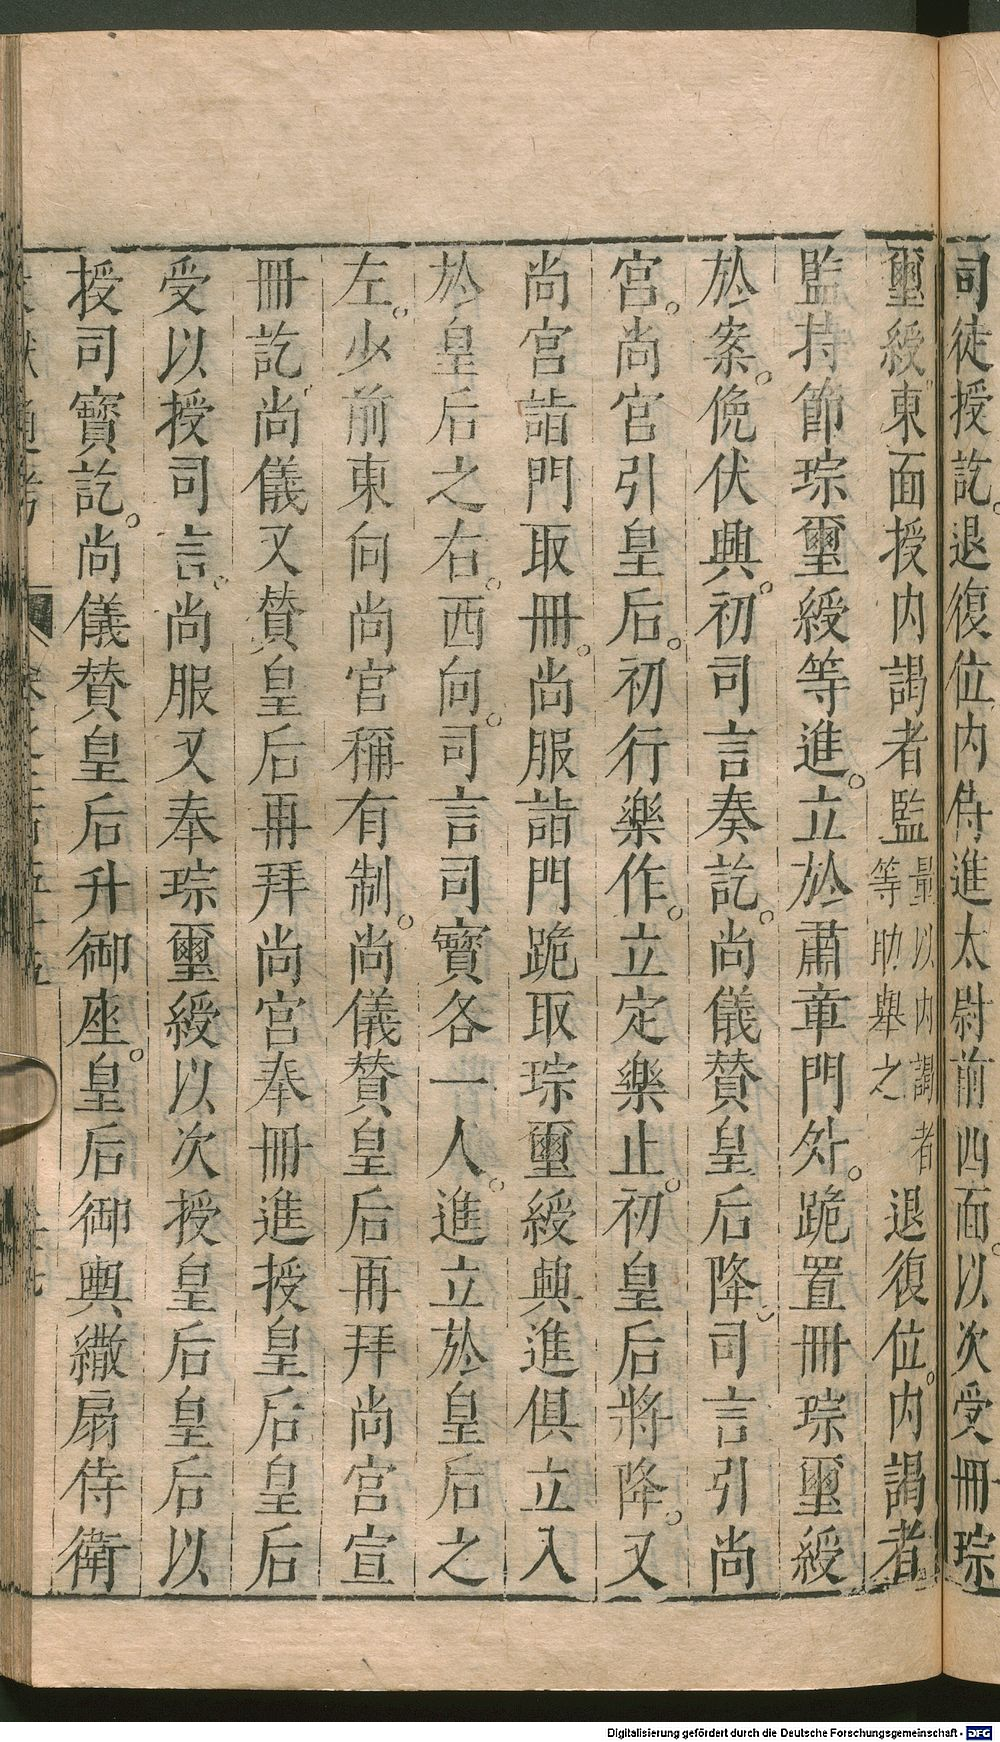 司徒授訖。退復位内侍進太尉前四面。以次受冊琮
璽綬。東面授内謁者監量以内謁者等助舉之退復位。内謁者
監持節琮璽綬等進。立於肅章門外。跪置冊琮璽綬
於案。俛伏興。初司言奏訖。尚儀贊皇后降。司言引尚
宮。尚宮引皇后。初行樂作。立定樂止。初皇后將降。又
尚宮詣門取冊。尚服詣門跪取琮璽綬興進俱立入
於皇后之右。西向。司言司寶各一人。進立於皇后之
左。少前東向尚宮稱有制。尚儀贊皇后再拜尚宮宣
冊訖。尚儀又贊皇后再拜尚宮奉冊進授皇后皇后
受以授司言。尚服又奉琮璽綬以次授皇后皇后以
授司寶訖。尚儀贊皇后升御座。皇后御輿繖扇侍衛
Digitalisierung gefördert durch die Deutsche Forschungsgemeinschaft - DFG